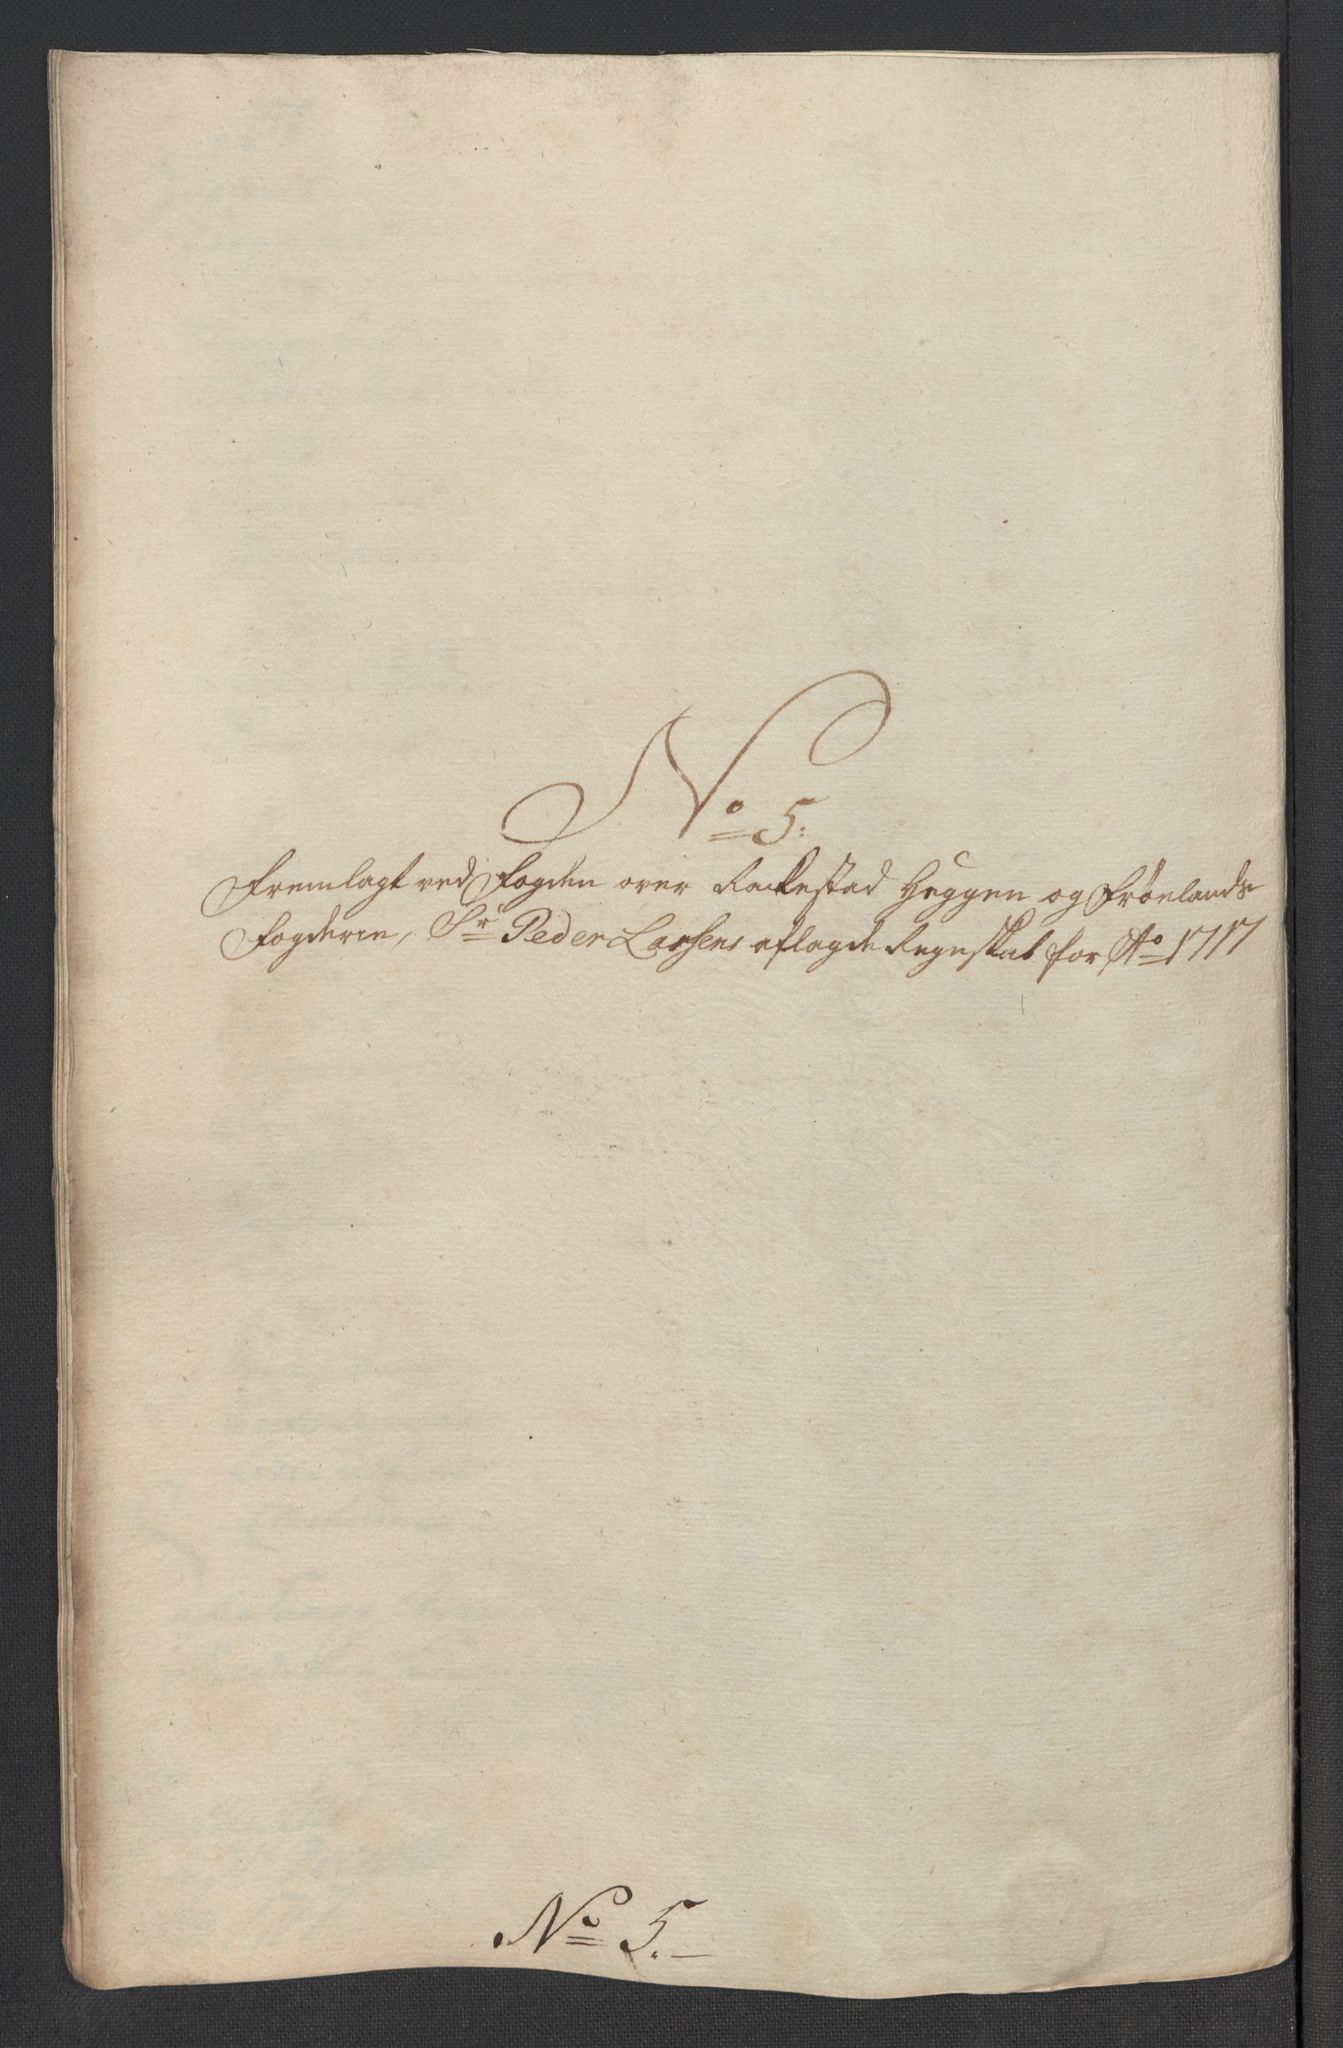 No 5:
Fremlagt ved Fogden over Rackestad Heggen og Frøelands
Fogderie, Sr Peder Larsens aflagde Regnskab for Ao 1717
No 5.